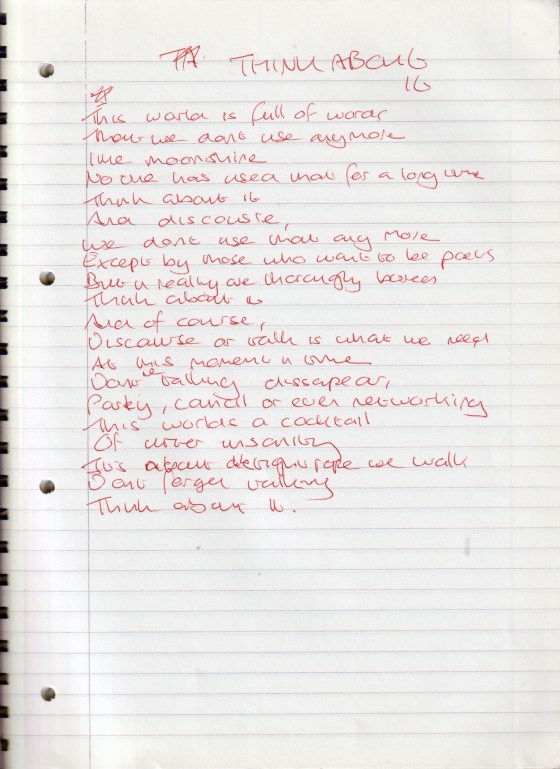 THINK ABOUT
IT
This world is full of words
That we dont use anymore
like moonshine
No one has used that for a long time
Think about it
And discourse,
we dont use that any more
Except by those who want to be poets
But in reality are thoroughly bored
Think about it
And of course,
Discourse or talk is what we need
At this moment in time
Dont talking dissapear,
Parky, or even networking
This worlds a cocktail
Of utter insanity
Its about tightrope we walk
Dont forget talking
Think about it.